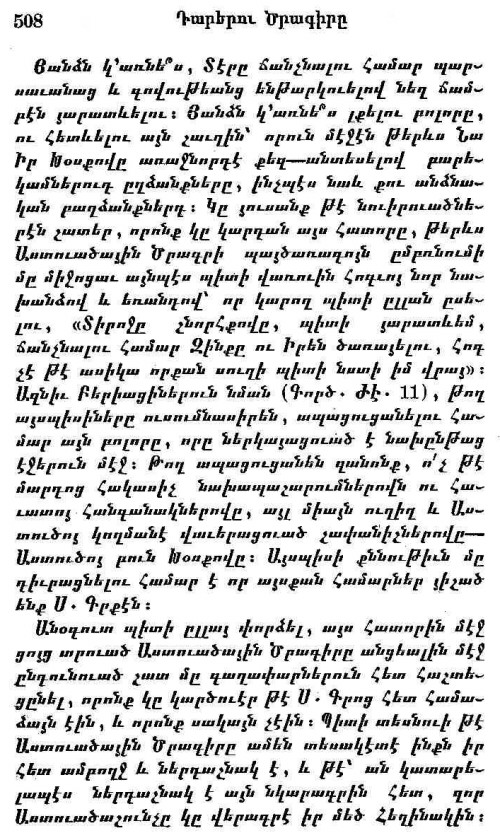 508
Դարերու Ծրագիրը
Յանձն կ՚առնե՞ս, Տէրը ճանչնալու համար պար-
սաւանաց և գովութեանց ենթարկուելով նեղ ճամ-
բէն յարատևելու։ Յանձն կ՚առնե՞ս լքելու բոլորը,
ու հետևելու այն շաւղին՝ որուն մէջէն թերևս Նա
Իր Խօսքովը առաջնորդէ քեզ—անտեսելով բարե-
կամներուդ ըղձանքները, ինչպէս նաև քու անձնա-
կան բաղձանքներդ։ Կը յուսանք թէ նուիրուածնե-
րէն շատեր, որոնք կը կարդան այս հատորը, թերևս
Աստուածային Ծրագրի պայծառագոյն ըմբռնումի
մը միջոցաւ այնպէս պիտի վառուին հոգւոյ նոր նա-
խանձով և եռանդով՝ որ կարող պիտի ըլլան ըսե-
լու, «Տիրոջը շնորհքովը, պիտի յարատևեմ,
ճանչնալու համար Զինքը ու Իրեն ծառայելու, հոգ
չէ թէ ասիկա որքան սուղի պիտի նստի իմ վրայ»։
Ազնիւ Բերիացիներուն նման (Գործ. ԺԷ. 11), թող
այսպիսիները ուսումնասիրեն, ապացուցանելու հա-
մար այն բոլորը, որը ներկայացուած է նախընթաց
էջերուն մէջ։ Թող ապացուցանեն զանոնք, ո՛չ թէ
մարդոց հակասիչ նախապաշարումներովն ու հա-
ւատոյ հանգանակներովը, այլ միայն ուղիղ և Աս-
տուծոյ կողմանէ վաւերացուած չափանիշներովը—
Աստուծոյ բուն Խօսքովը։ Այսպիսի քննութիւն մը
դիւրացնելու համար է որ այսքան համարներ յիշած
ենք Ս. Գրքէն։
Անօգուտ պիտի ըլլայ փորձել, այս հատորին մէջ
ցոյց տրուած Աստուածային Ծրագիրը անցեալին մէջ
ընդունուած շատ մը գաղափարներուն հետ հաշտե-
ցընել, որոնք կը կարծուէր թէ Ս. Գրոց հետ համա-
ձայն էին, և որոնք սակայն չէին։ Պիտի տեսնուի թէ
Աստուածային Ծրագիրը ամեն տեսակէտէ ինքն իր
հետ ամբողջ և ներդաշնակ է, և թէ՝ ան կատարե-
լապէս ներդաշնակ է այն նկարագրին հետ, զոր
Աստուածաշունչը կը վերագրէ իր մեծ Հեղինակին։